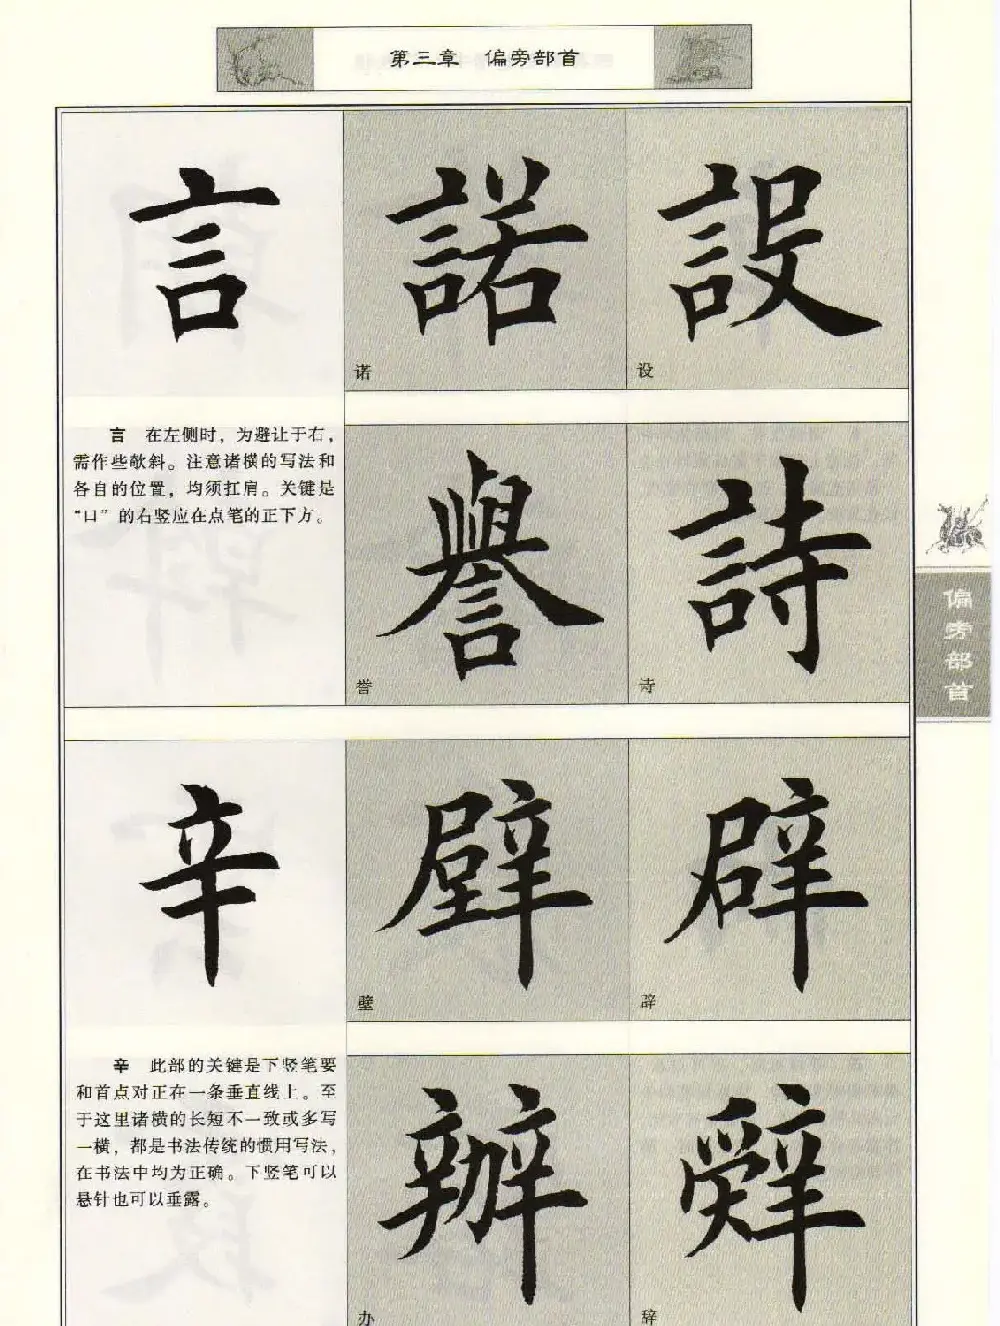 第三章 偏旁部首
言
諾
诺
設
设
言 在左侧时，为避让于右，
需作些欹斜。注意诸横的写法和
各自的位置，均须扛肩。关键是
“口”的右竖应在点笔的正下方。
譽
誉
詩
偏旁部首
辛
壁
壁
辟
辛 此部的关键是下竖笔要
和首点对正在一条垂直线上。至
于这里诸横的长短不一致或多写
一横，都是书法传统的惯用写法，
在书法中均为正确。下竖笔可以
悬针也可以垂露。
辦
办
辭
辞